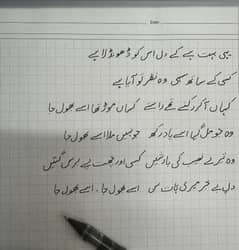 یہی بہت ہے کے دل اس کو ڈھونڈ لایا ہے
کسی کے ساتھ سہی وہ نظر تو آیا ہے
کہاں آ کر رکنے تھے راستے کہاں موڑ تھا اسے بھول جا
وہ جو مل گیا اسے یاد رکھ جو نہیں ملا اسے بھول جا
وہ تیرے نصیب کی بارشیں کسی اور چھت پے برس گئیں
دل بے خبر میری بات سن اسے بھول جا۔ اسے بھول جا